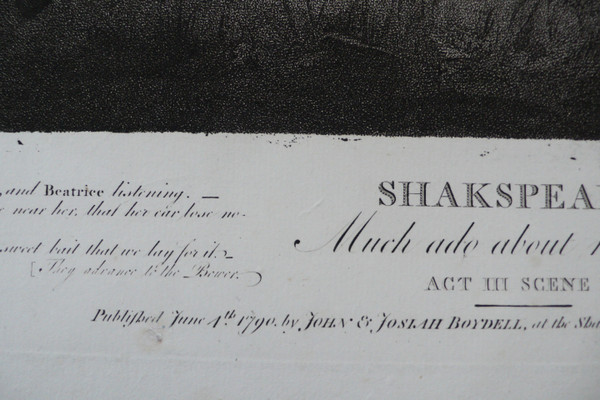 and Beatrice listening. —
near her, that her ear lose no-
sweet bait that we lay for it.-
[They advance to the Bower.
SHAKSPEA
Much ado about
ACT III SCENE
Publiſhed June 4th 1790, by JOHN & JOSIAH BOYDELL, at the Sha